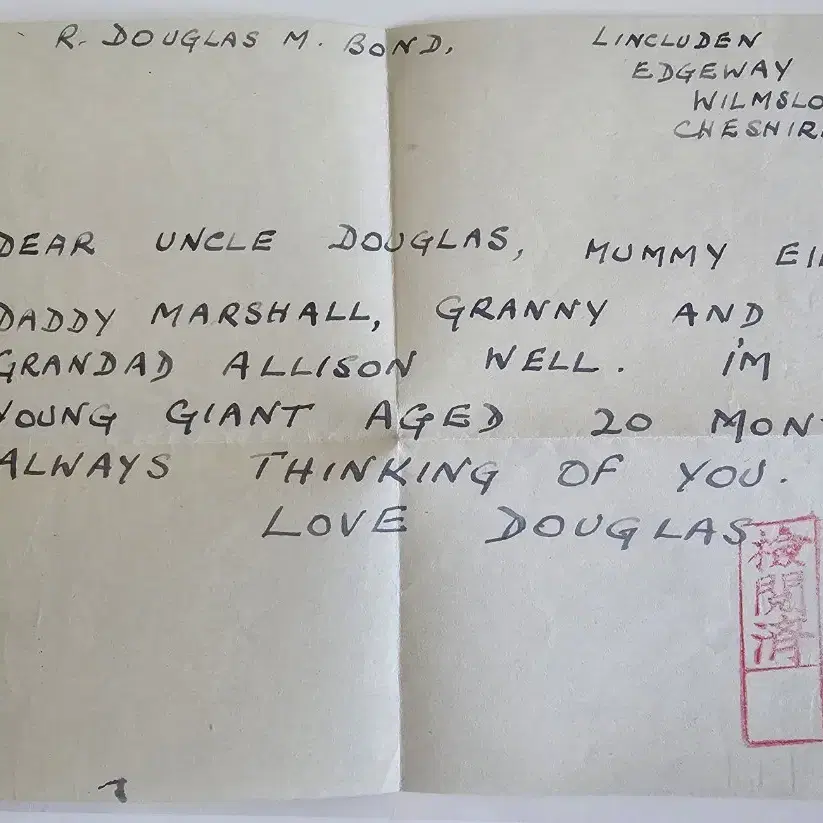 R. DOUGLAS M. BOND,
LINCLUDEN
EDGEWAY
WILMSLO
CHESHIR
DEAR UNCLE DOUGLAS, MUMMY EI
DADDY MARSHALL, GRANNY AND
GRANDAD ALLISON WELL. I'M
YOUNG GIANT AGED 20 MON
ALWAYS THINKING OF YOU.
LOVE DOUGLAS
檢閲済